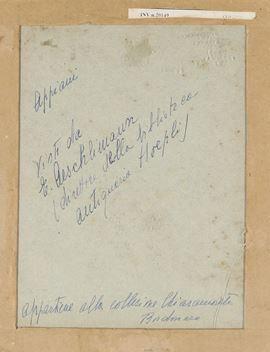 INV n. 20149
Appiani
Visto da
E. Aeschlimann
(direttore della biblioteca
antiquaria Hoepli)
appartiene alla collezione Chiaramonte
Bordonaro